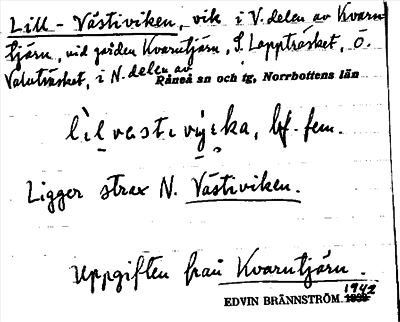 Lill-Västiviken, vik i V. delen av Kvarn-
tjärn, vid gården Kvarntjärn, S. Lappträsket, Ö.
Valvträsket, i N. delen av
Råneå sn och tg, Norrbottens län
lìlvesti vika, bf. fem.
Ligger strax N. Västiviken.
Uppgiften från Kvarntjärn.
1942
EDVIN BRÄNNSTRÖM.